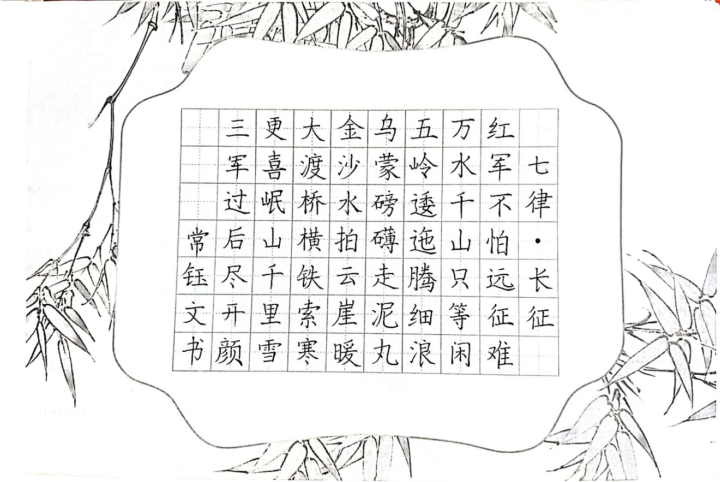 七律·长征
红军不怕远征难
万水千山只等闲
五岭逶迤腾细浪
乌蒙磅礴走泥丸
金沙水拍云崖暖
大渡桥横铁索寒
更喜岷山千里雪
三军过后尽开颜
常钰文书